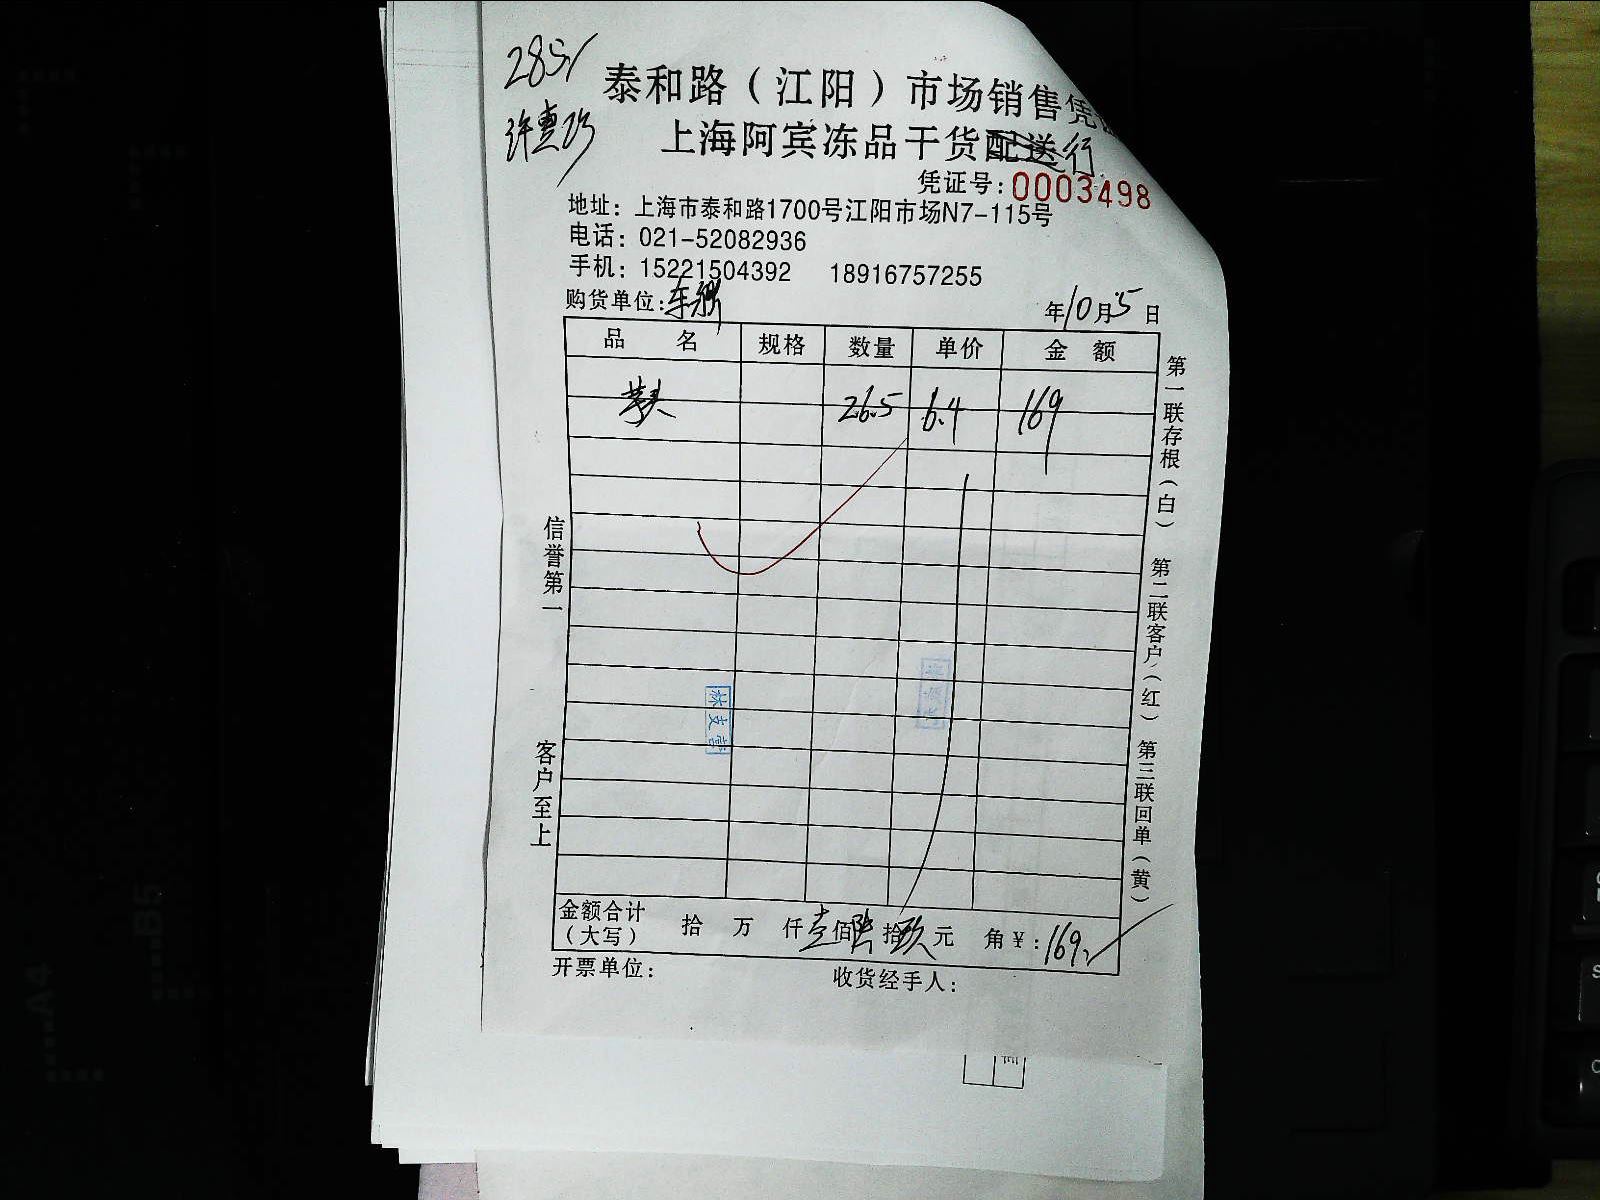 285
许惠珍
泰和路（江阳）市场销售凭
上海阿宾冻品干货配送行
凭证号：0003498
地址：上海市泰和路1700号江阳市场N7-115号
电话：021-52082936
手机：15221504392 18916757255
购货单位：
年10月5日
品名 规格 数量 单价 金额
26.5 6.4 169
信誉第一
客户至上
第一联存根（白）
第二联客户（红）
第三联回单（黄）
金额合计（大写） 拾 万 仟壹佰陆拾玖元 角 ￥：169.
开票单位： 收货经手人：